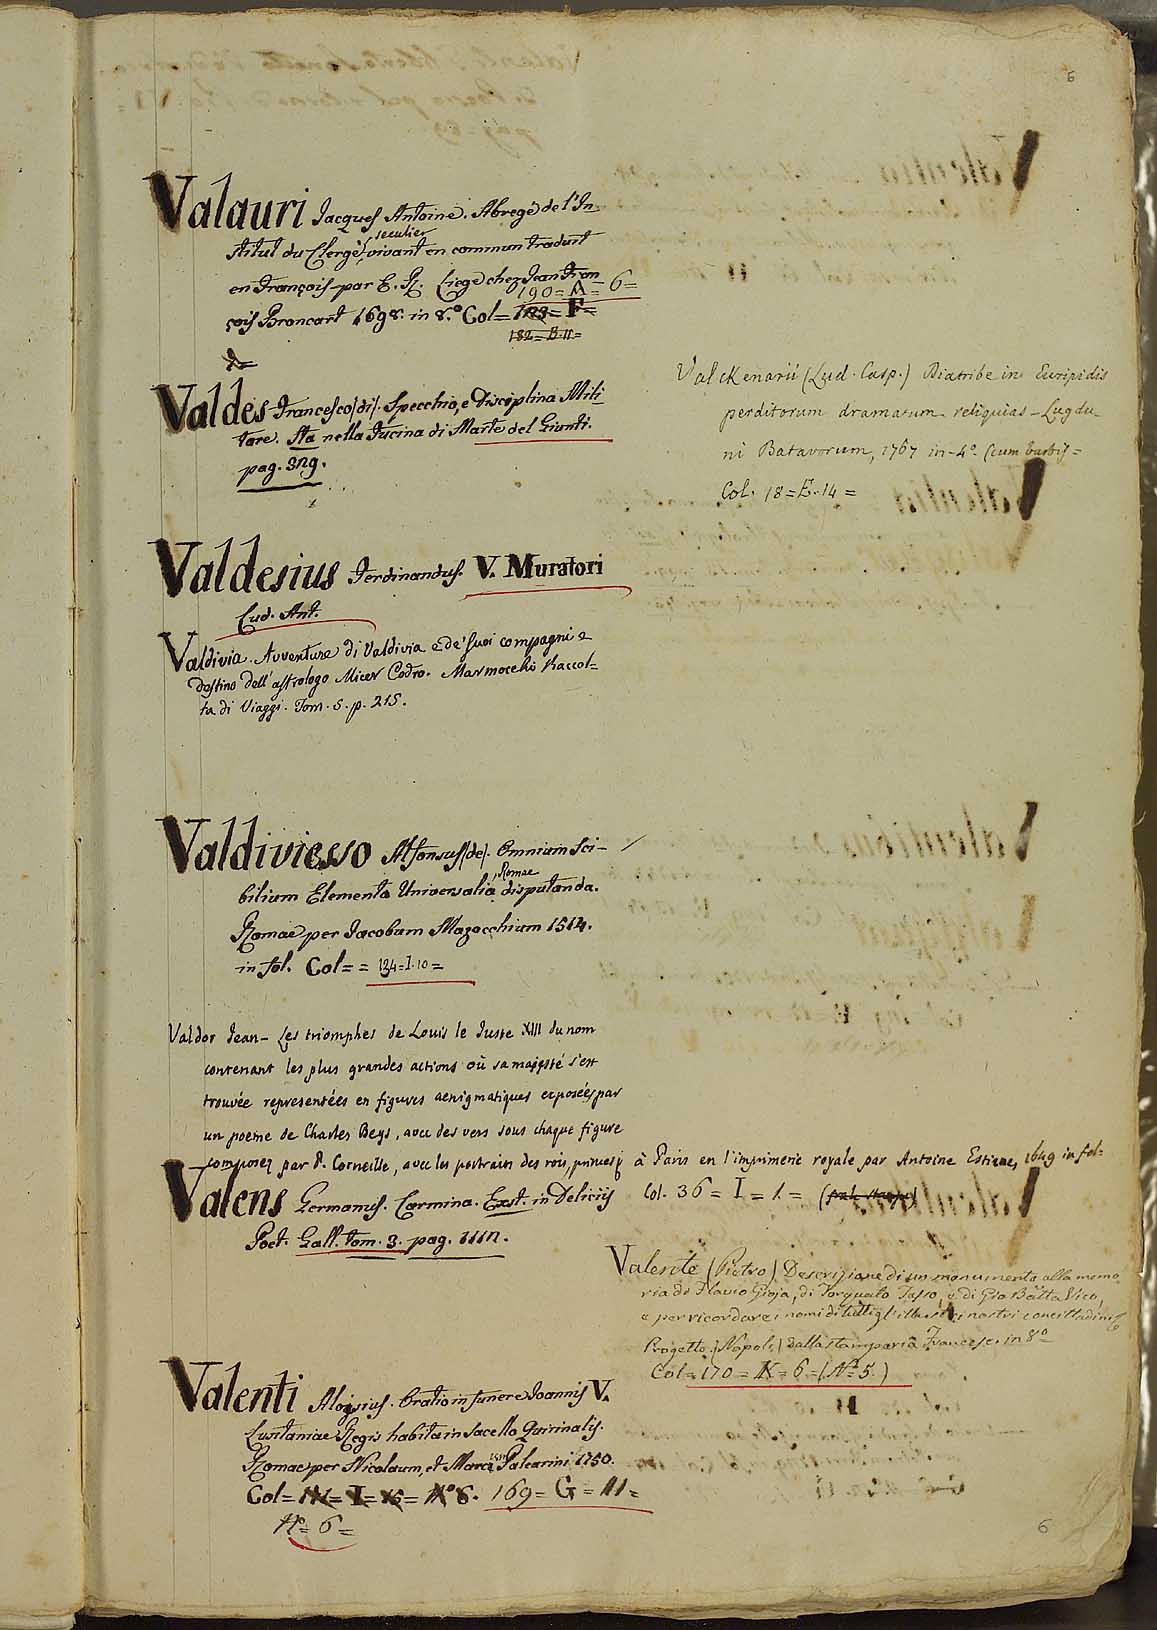 6
Valauri Jacques Antoine. Abregé de l'In-
stitut du Clergé seculier vivant en commun traduit
en François par E. R. Liege chez Jean Fran-
çois Broncart 1698. in 8.° Col = 123 = F =
190 = A = 6 =
182 = B. 11 =
Valdes Francesco (di). Specchio, e Disciplina Mili-
tare. Sta nella Fucina di Marte del Giunti.
pag. 379.
Valckenarii (Lud. Casp.) Diatribe in Euripidis
perditorum dramatum reliquias - Lugdu-
ni Batavorum, 1767 in-4°. (cum barbis =
Col. 18 = E. 14 =
Valdesius Ferdinandus. V. Muratori
Lud. Ant.
Valdivia. Avventure di Valdivia e de' suoi compagni e
destino dell'astrologo Micer Codro. Marmocchi Raccol=
ta di Viaggi. Tom. 5. p. 215.
Valdiviesso Alfonsus (de). Omnium Sci-
bilium Elementa Universalia Romae disputanda.
Romae per Jacobum Mazocchium 1514.
in fol. Col = = 134 = I. 10 =
Valdor Jean - Les triomphes de Louis le Juste XIII du nom
contenant les plus grandes actions où sa majesté s'est
trouvée representées en figures aenigmatiques exposées par
un poeme de Charles Beys, avec des vers sous chaque figure
composez par P. Corneille, avec les portraits des rois, princes & à Paris en l'imprimerie royale par Antoine Estiene, 1649 in fol=
Col. 36 = I = 1. =
Valens Germanus. Carmina. Exst. in Deliciis
Poet. Gall. tom. 3. pag. 1117.
Valente (Pietro) Descrizione di un monumento alla memo-
ria di Flavio Gioja, di Torquato Tasso, e di Gio Batta Vico,
e per ricordare i nomi di tutti gl'illustri nostri concittadini
Progetto. (Napoli) dalla stamperia Francese. in 8°
Col = 170 = K = 6 = (N° 5.)
Valenti Aloysius. Oratio in funere Joannis V.
Lusitaniae Regis habita in Sacello Quirinalis.
Romae per Nicolaum, et Marcum Palearini 1750.
Col = 141 = I = 16 = N° 8. 169 = G = 11 =
N° = 6 =
6